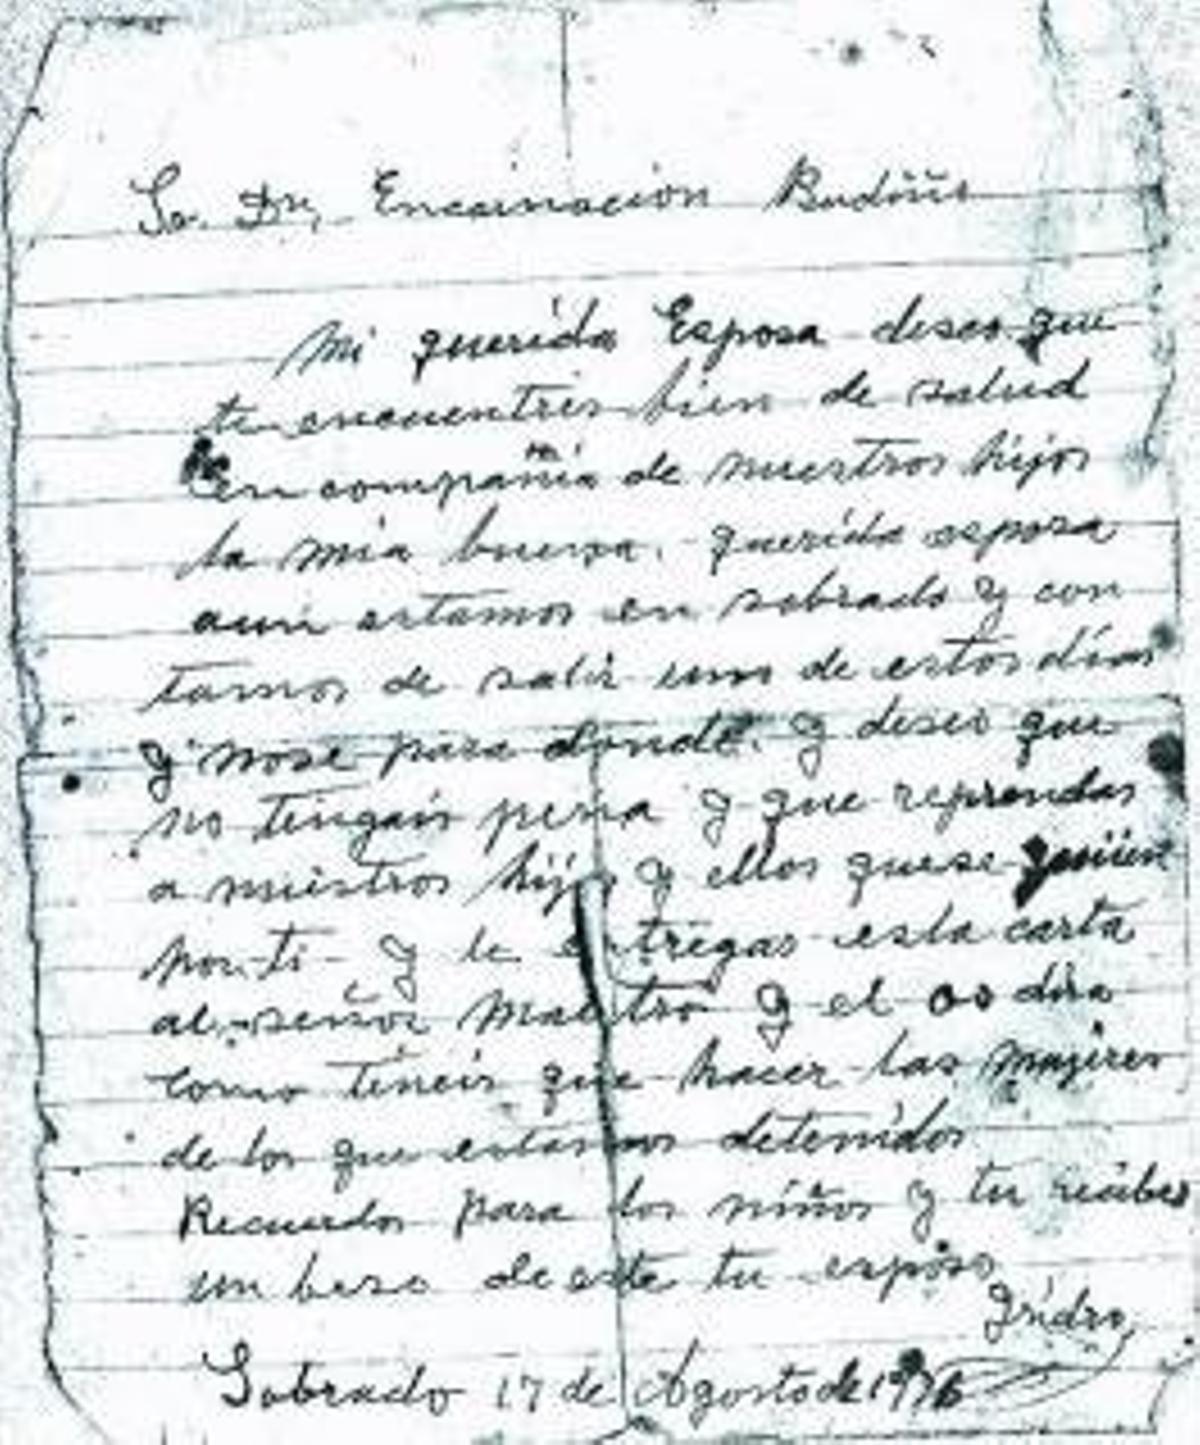 Sr. Dn, Encarnacion Budiño
Mi querida Esposa deseo que
te encuentres bien de salud
en compañia de nuestros hijos
la mia buena. querida esposa
aun estamos en sobrado y con
tamos de salir uno de estos dias
y nose para donde. y deseo que
no tengais pena y que reprendas
a nuestros hijos y ellos quese
por ti y le entregas esta carta
al señor maestro y el os dira
como teneis que hacer las mujeres
de los que estamos detenidos
Recuerdos para los niños y tu recibes
un beso de este tu esposo
Isidro,
Sobrado 17 de Agosto de